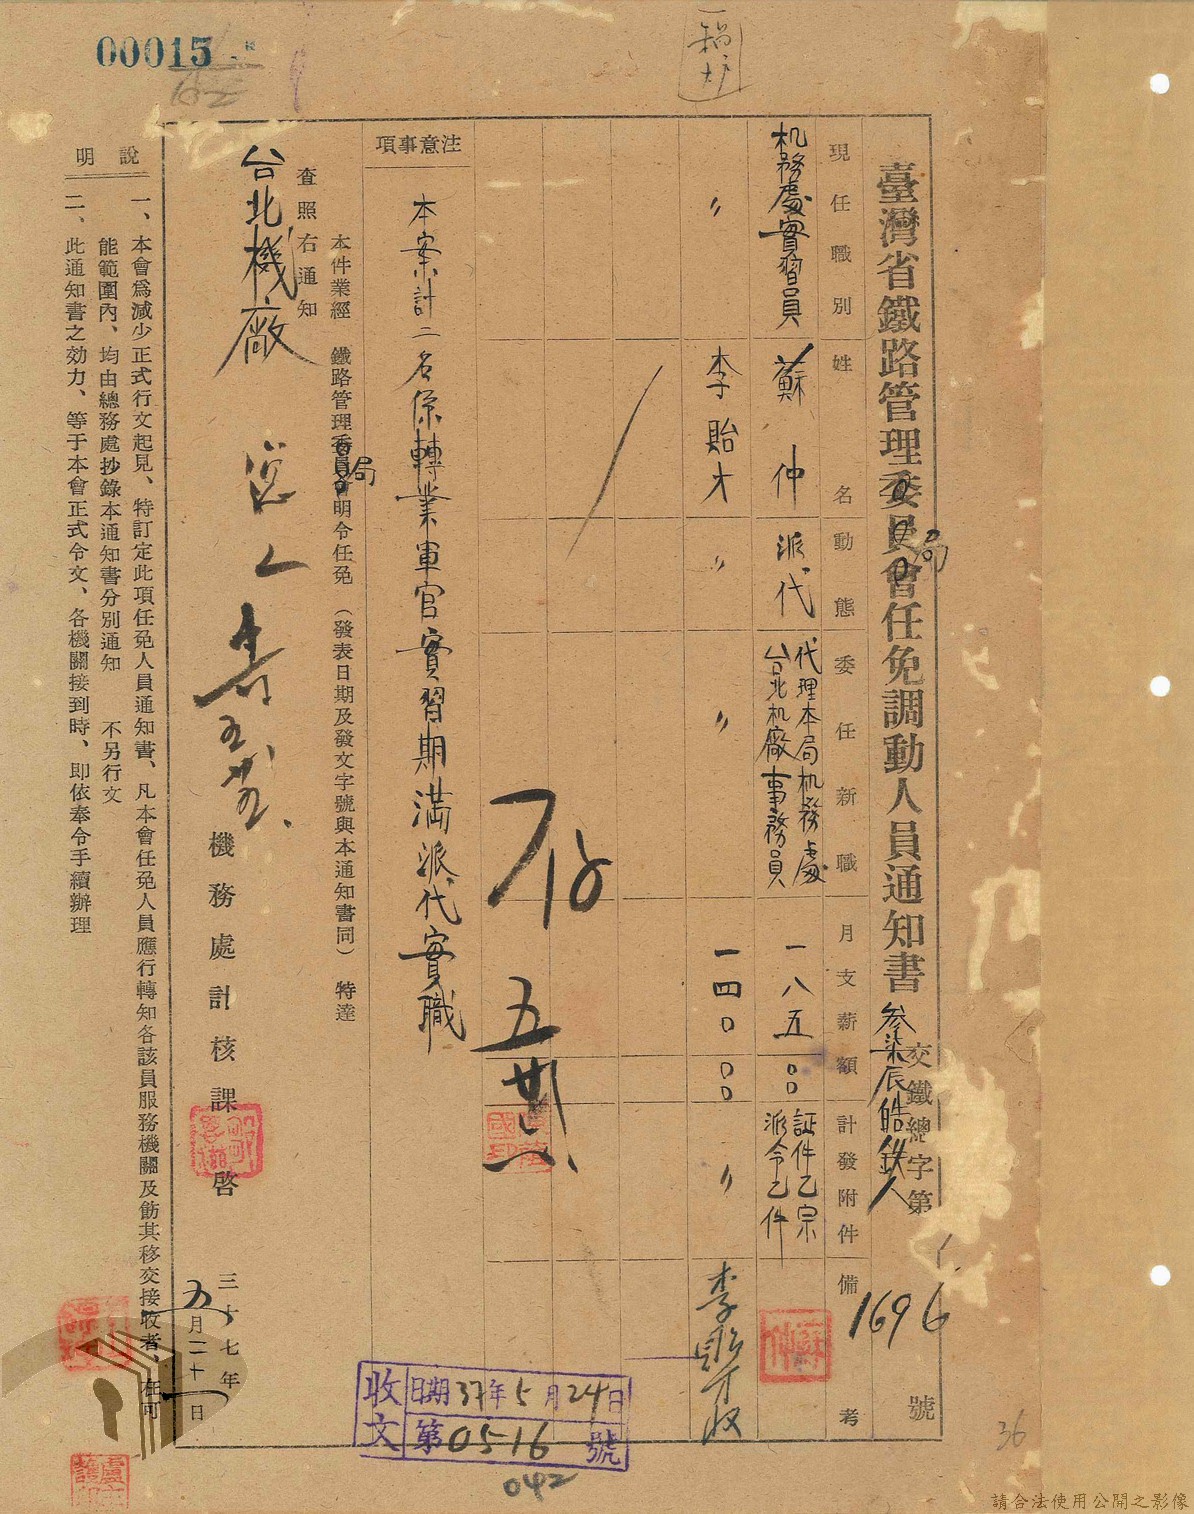 00015
臺灣省鐵路管理委員會任免調動人員通知書
局
參柒辰皓鉄人
交鐵總字第
1696
號
現任職別
姓名
動態
委任新職
月支薪額
計發附件
備考
机務處實習員
蘇仲
派代
代理本局机務處
台北机廠事務員
一八五00
証件乙宗
派令乙件
〃
李貽才
〃
〃
一四000
〃
李貽才收
注意事項
本案計二名係轉業軍官實習期滿派代實職
本件業經 鐵路管理委員會明令任免 (發表日期及發文字號與本通知書同) 特達
局
查照右通知
台北機廠
機務處計核課 啓
三十七年
五月二十日
說明
一、本會爲減少正式行文起見、特訂定此項任免人員通知書、凡本會任免人員應行轉知各該員服務機關及飭其移交接收者、在可
能範圍內、均由總務處抄錄本通知書分別通知 不另行文
二、此通知書之効力、等于本會正式令文、各機關接到時、即依奉令手續辦理
收文
日期37年5月24日
第0516號
042
36
請合法使用公開之影像